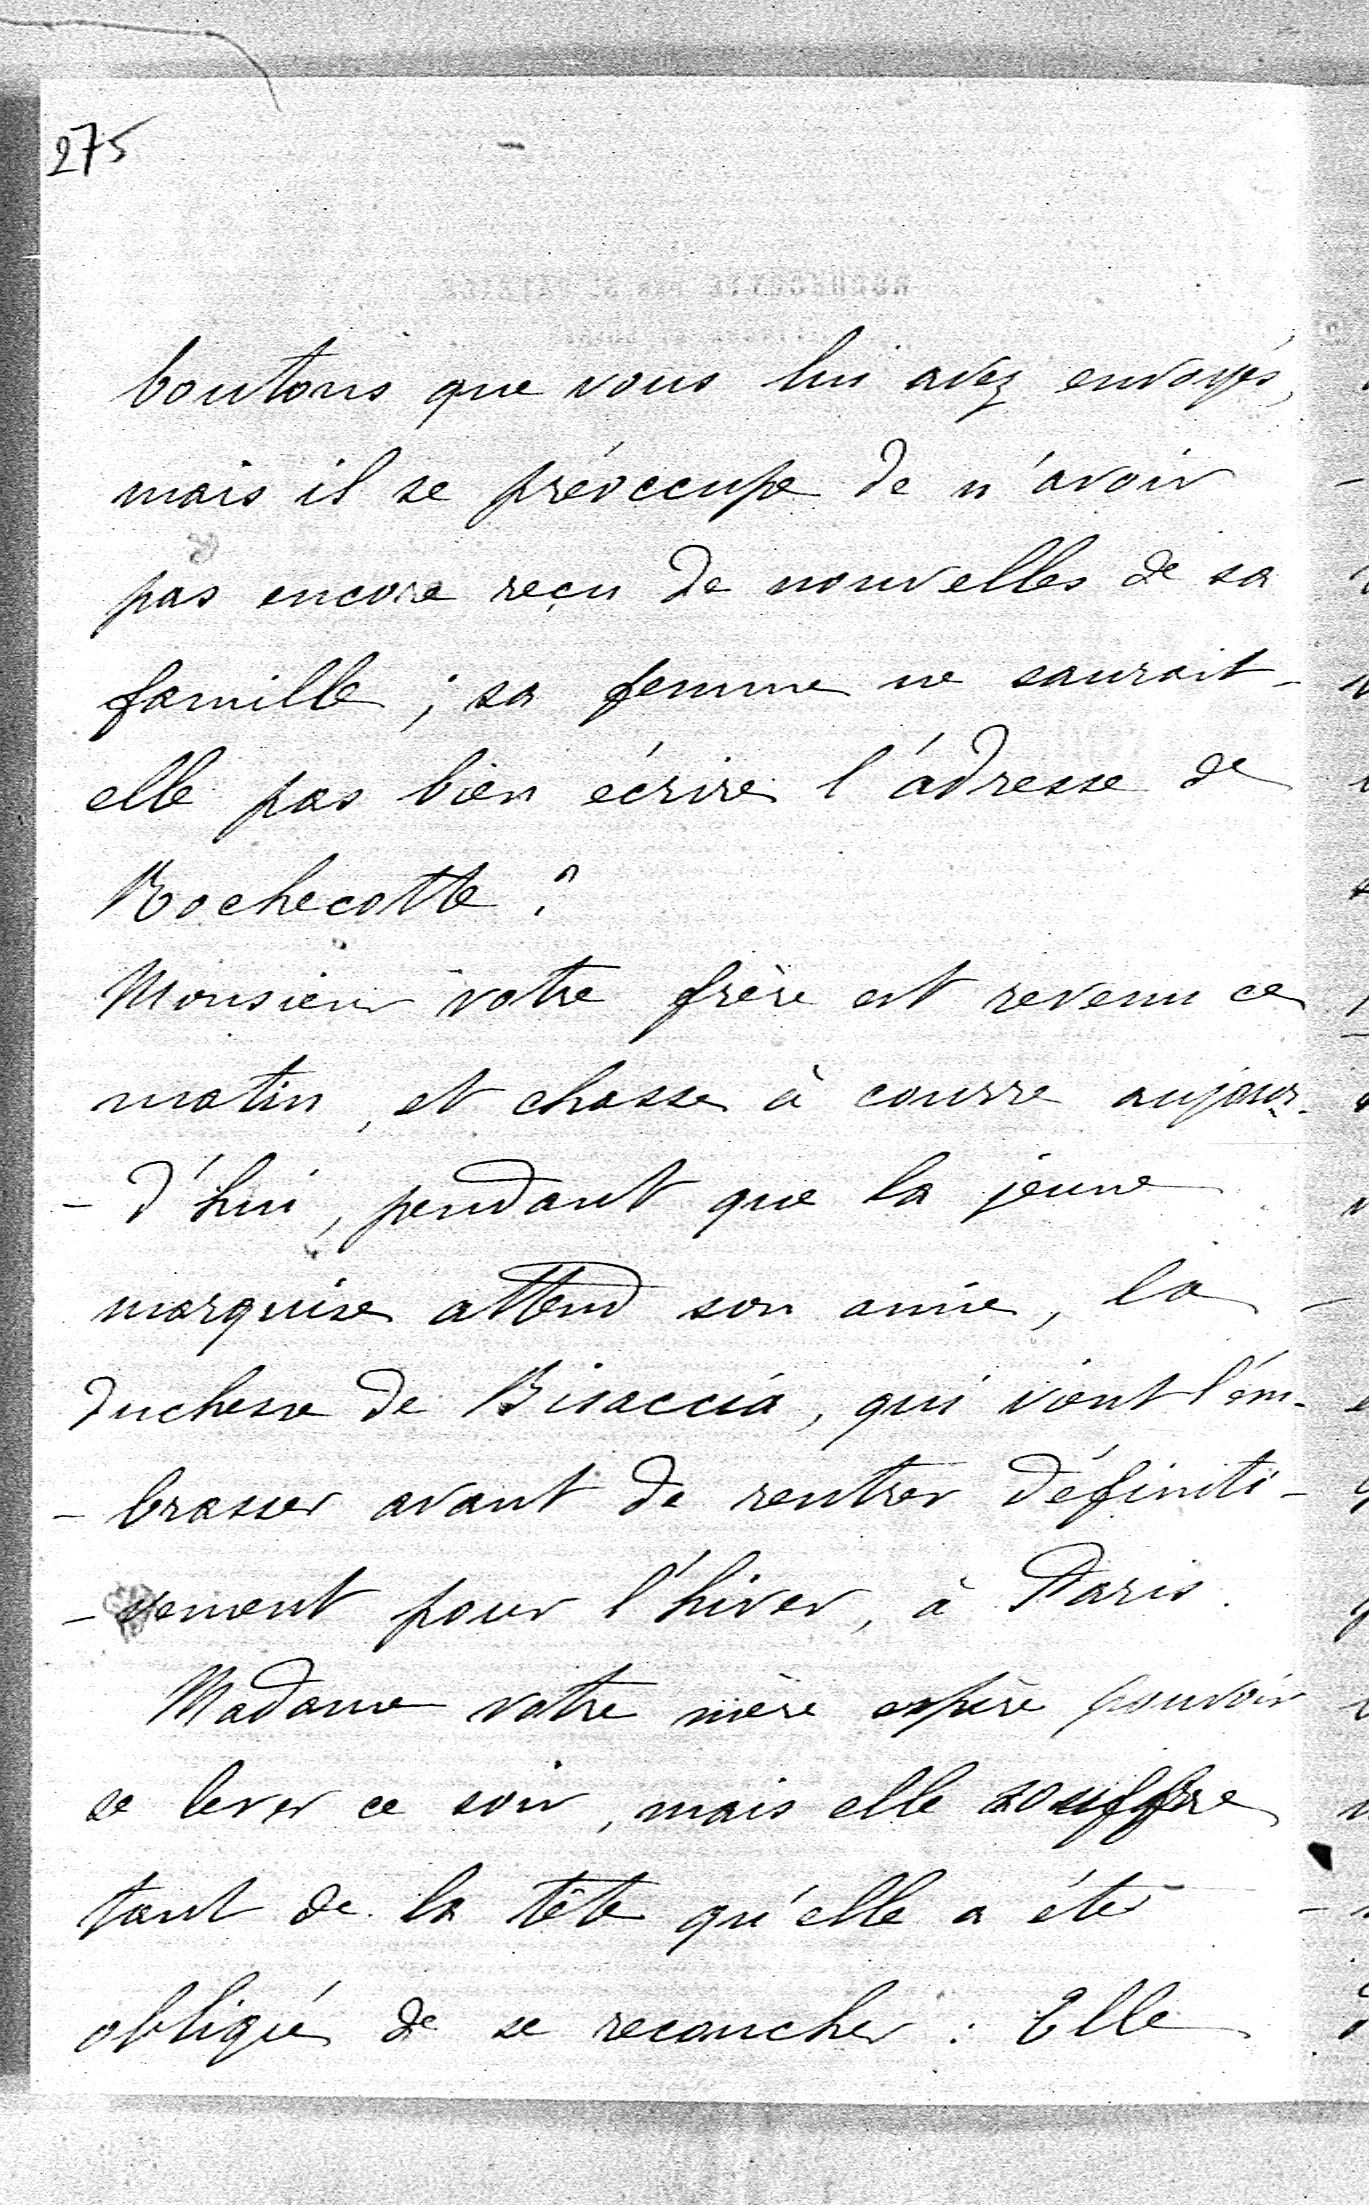 275
boutons que vous lui avez envoyés,
mais il se préoccupe de n'avoir
pas encore reçu de nouvelles de sa
famille ; sa femme ne saurait-
elle pas bien écrire l'adresse de
Rochecotte ?
Monsieur votre frère est revenu ce
matin, et chasse à courre aujour-
- d'hui, pendant que la jeune
marquise attend son amie, la
duchesse de Bisaccia, qui vient l'em-
- brasser avant de rentrer définiti-
- vement pour l'hiver, à Paris.
Madame votre mère espère pouvoir
se lever ce soir, mais elle souffre
tant de la tête qu'elle a été
obligée de se recoucher : Elle